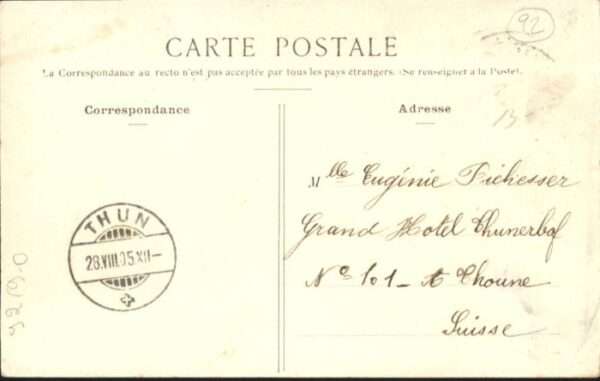 92
CARTE POSTALE
La Correspondance au recto n'est pas acceptée par tous les pays étrangers. (Se renseigner à la Poste).
Correspondance
Adresse
Mlle Eugénie Fichesser
Grand Hotel Thunerhof
No 101 - à Thoune
Suisse
THUN
28.VIII.05.XII-
9219-0